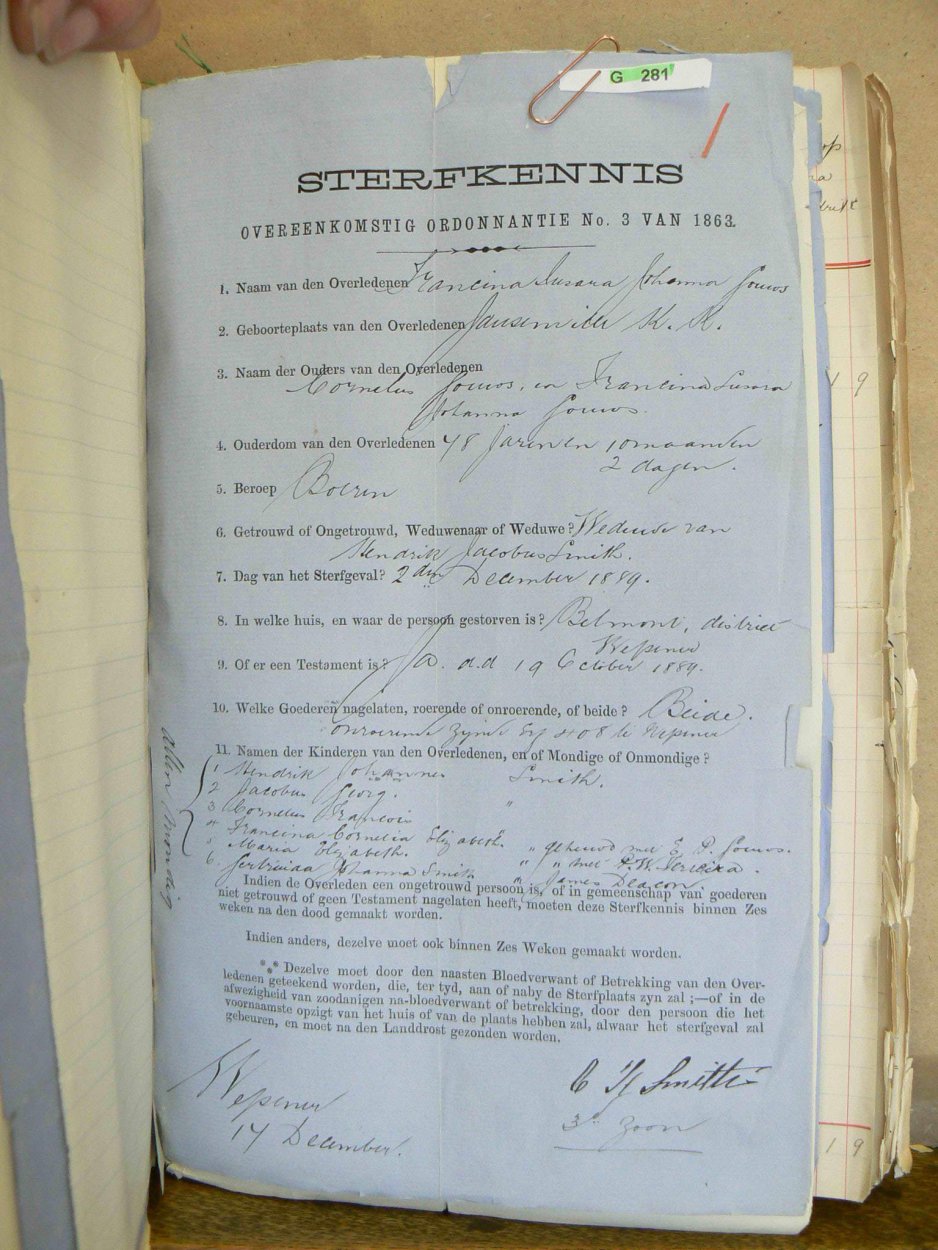 G 281
STERFKENNIS
OVEREENKOMSTIG ORDONNANTIE No. 3 VAN 1863.
1. Naam van den Overledenen Francina Susara Johanna Gouws
2. Geboorteplaats van den Overledenen Jansenville K. K.
3. Naam der Ouders van den Overledenen
Cornelus Gouws, en Francina Susara
Johanna Gouws.
4. Ouderdom van den Overledenen 48 Jaren en 10 maanden
2 dagen.
5. Beroep Boeren
6. Getrouwd of Ongetrouwd, Weduwenaar of Weduwe? Weduwe van
Hendrik Jacobus Smith.
7. Dag van het Sterfgeval? 2den December 1889.
8. In welke huis, en waar de persoon gestorven is? Belmont, district
Wepener
9. Of er een Testament is? Ja. d.d 19 October 1889.
10. Welke Goederen nagelaten, roerende of onroerende, of beide? Beide.
onroerende zijnde Erf 408 te Wepener
11. Namen der Kinderen van den Overledenen, en of Mondige of Onmondige?
1 Hendrik Johannes Smith.
2 Jacobus Georg. "
3 Cornelus Francois
4 Francina Cornelia Elizabeth " gehuwd met E. P. Gouws.
5 Maria Elizabeth. " " met
6. Johanna Smith " James Deacon.
Allen Mondig
Indien de Overleden een ongetrouwd persoon is, of in gemeenschap van goederen
niet getrouwd of geen Testament nagelaten heeft, moeten deze Sterfkennis binnen Zes
weken na den dood gemaakt worden.
Indien anders, dezelve moet ook binnen Zes Weken gemaakt worden.
*** Dezelve moet door den naasten Bloedverwant of Betrekking van den Over-
ledenen geteekend worden, die, ter tyd, aan of naby de Sterfplaats zyn zal ;—of in de
afwezigheid van zoodanigen na-bloedverwant of betrekking, door den persoon die het
voornaamste opzigt van het huis of van de plaats hebben zal, alwaar het sterfgeval zal
gebeuren, en moet na den Landdrost gezonden worden.
Wepener
14 December.
Smith
3e Zoon